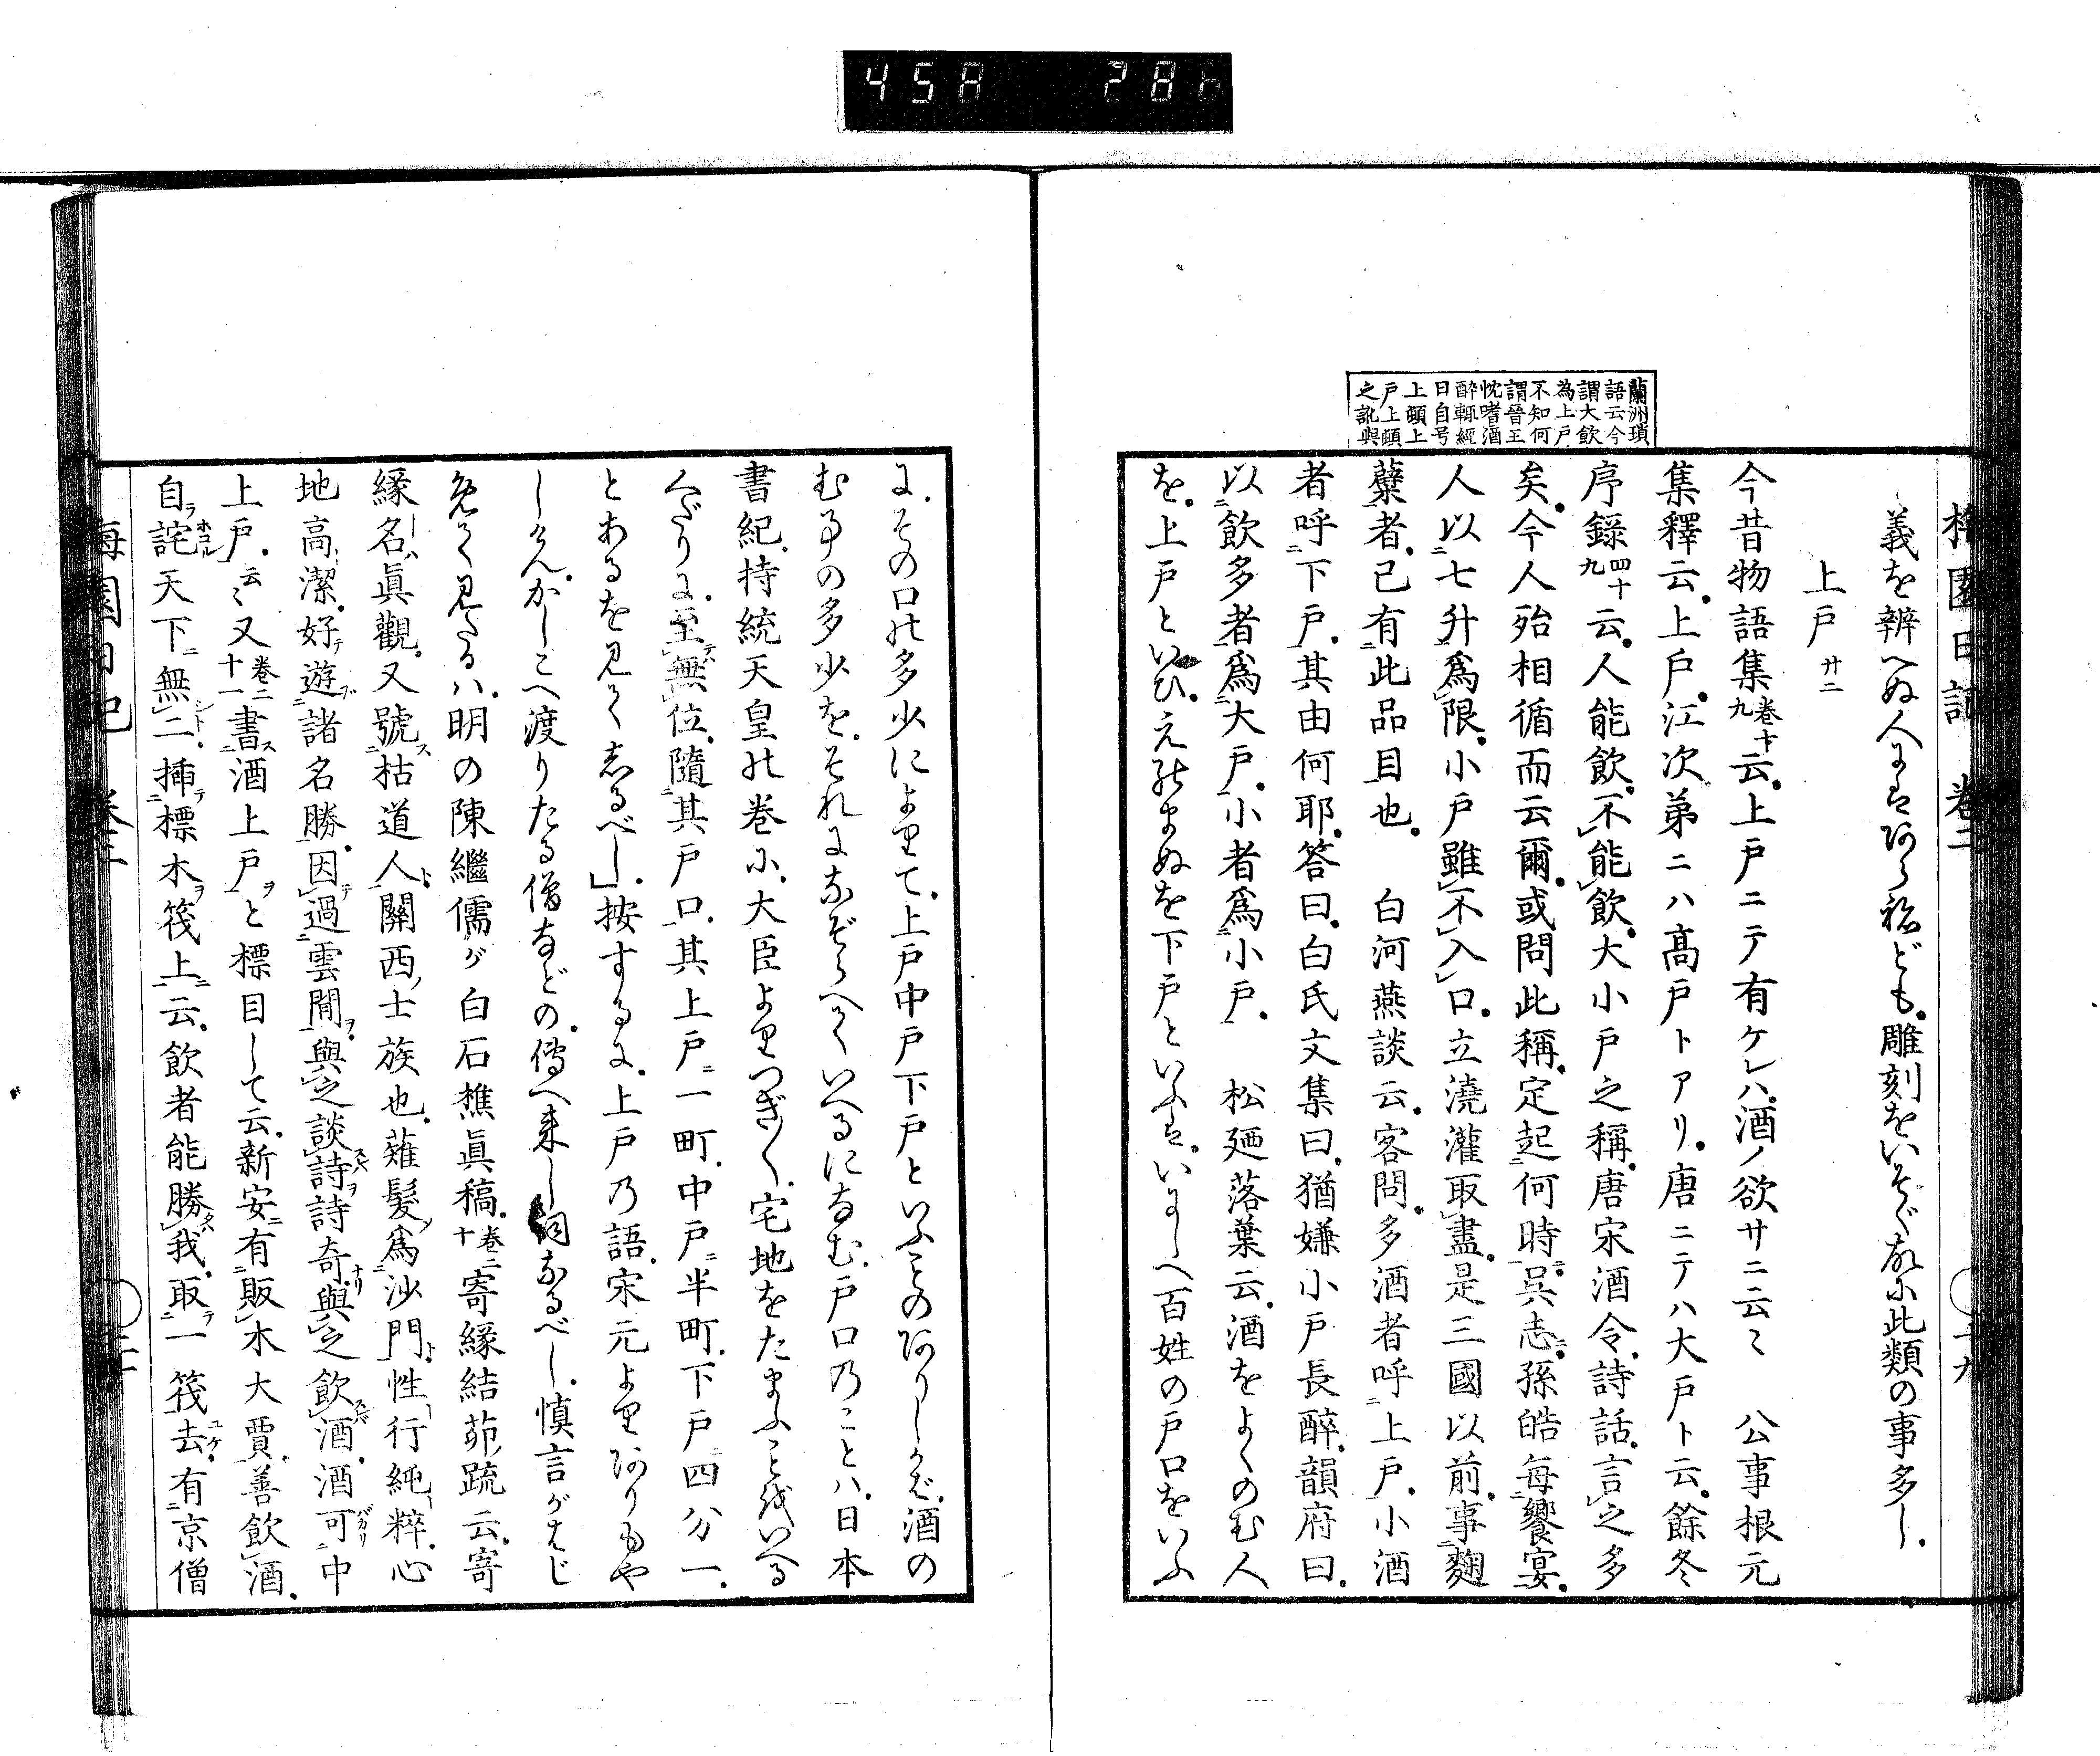 458 286
蘭洲瑣
語云今
謂大飲
為上戶
不知何
謂晉王
忱嗜酒
醉輒經
日自号
上頓上
戶上頓
之訛與
梅園日記 卷二 二十九
義を辨へぬ人にはあらねども。雕刻をいそぐ故に此類の事多し。
上戶 廿二
今昔物語集卷十九云。上戶ニテ有ケレハ。酒ノ欲サニ云〻 公事根元
集釋云。上戶。江次第ニハ高戶トアリ。唐ニテハ大戶ト云。餘冬
序錄四十九云。人能飲。不能飲。大小戶之稱。唐宋酒令。詩話。言之多
矣。今人殆相循而云爾。或問此稱。定起何時。呉志。孫皓每饗宴。
人以七升爲限。小戶雖不入口。立澆灌取盡。是三國以前。事麹
蘖者。已有此品目也。 白河燕談云。客問。多酒者呼上戶。小酒
者呼下戶。其由何耶。答曰。白氏文集曰。猶嫌小戶長醉。韻府曰。
以飲多者爲大戶。小者爲小戶。 松廼落葉云。酒をよくのむ人
を。上戶といひ。えのまぬを下戶といふは。いにしへ百姓の戶口をいふ
に。その口の多少によりて。上戶中戶下戶といふことのありしかば。酒の
むことの多少を。それになぞらへていへるになむ。戶口のことハ。日本
書紀。持統天皇の卷に。大臣よりつぎ〳〵。宅地をたまふことをいへる
くだりに。至無位。隨其戶口。其上戶ニ一町。中戶ニ半町。下戶ニ四分一。
とあるを見てしるべし」按するに。上戶の語。宋元よりありもや
しけん。かしこへ渡りたる僧などの。傳へ來し詞なるべし。愼言がはじ
めて見たるハ。明の陳繼儒が白石樵眞稿。卷二十寄緣結茆疏云。寄
緣名ハ眞觀。又號ス枯道人ト。關西ノ士族也。薙髮ノ爲沙門ト。性行純粹。心
地高潔。好テ遊ブ諸名勝。因テ過雲間ヲ。與之談スレバ詩ヲ詩奇ナリ。與之飲スレバ酒。酒可バカリ中
上戶。云〻又卷二十一書ス酒上戶ヲと標目して云。新安ニ有販木大賈。善飲酒。
自ラ詫ホコル天下ニ無シト二。插テ標木ヲ筏上ニ云。飲者能勝タバ我。取テ一筏去ユケ。有京僧
梅園日記 卷二 三十